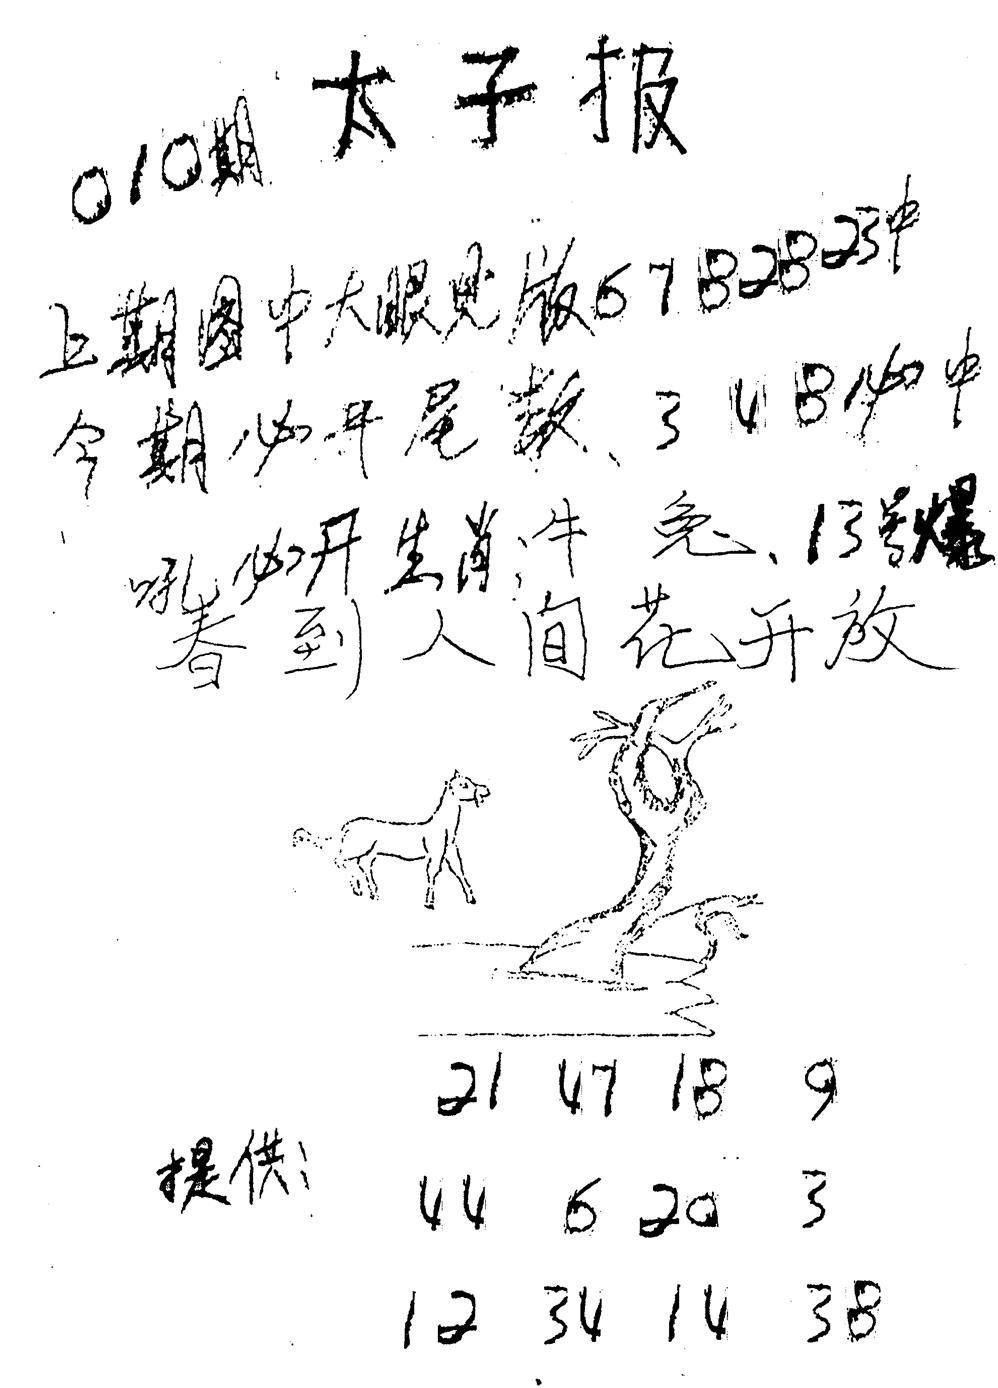 太子报
010期
上期图中大眼见版6 7 8 28 23中
今期必开尾数、3 4 8必中
吼必开生肖:牛 兔、13号爆
春到人间花开放
21 47 18 9
提供:
44 6 20 3
12 34 14 38